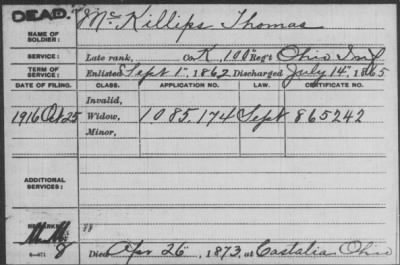 DEAD.
NAME OF SOLDIER: McKillips Thomas
SERVICE: Late rank, Co. K, 100 Reg't Ohio Inf
TERM OF SERVICE: Enlisted Sept 1", 1862, Discharged July 14", 1865
DATE OF FILING. CLASS. APPLICATION NO. LAW. CERTIFICATE NO.
Invalid,
1916 Oct 25 Widow, 1085,174 Sept 865242
Minor,
ADDITIONAL SERVICES:
REMARKS:
Died Apr 26, 1873, at Castalia Ohio